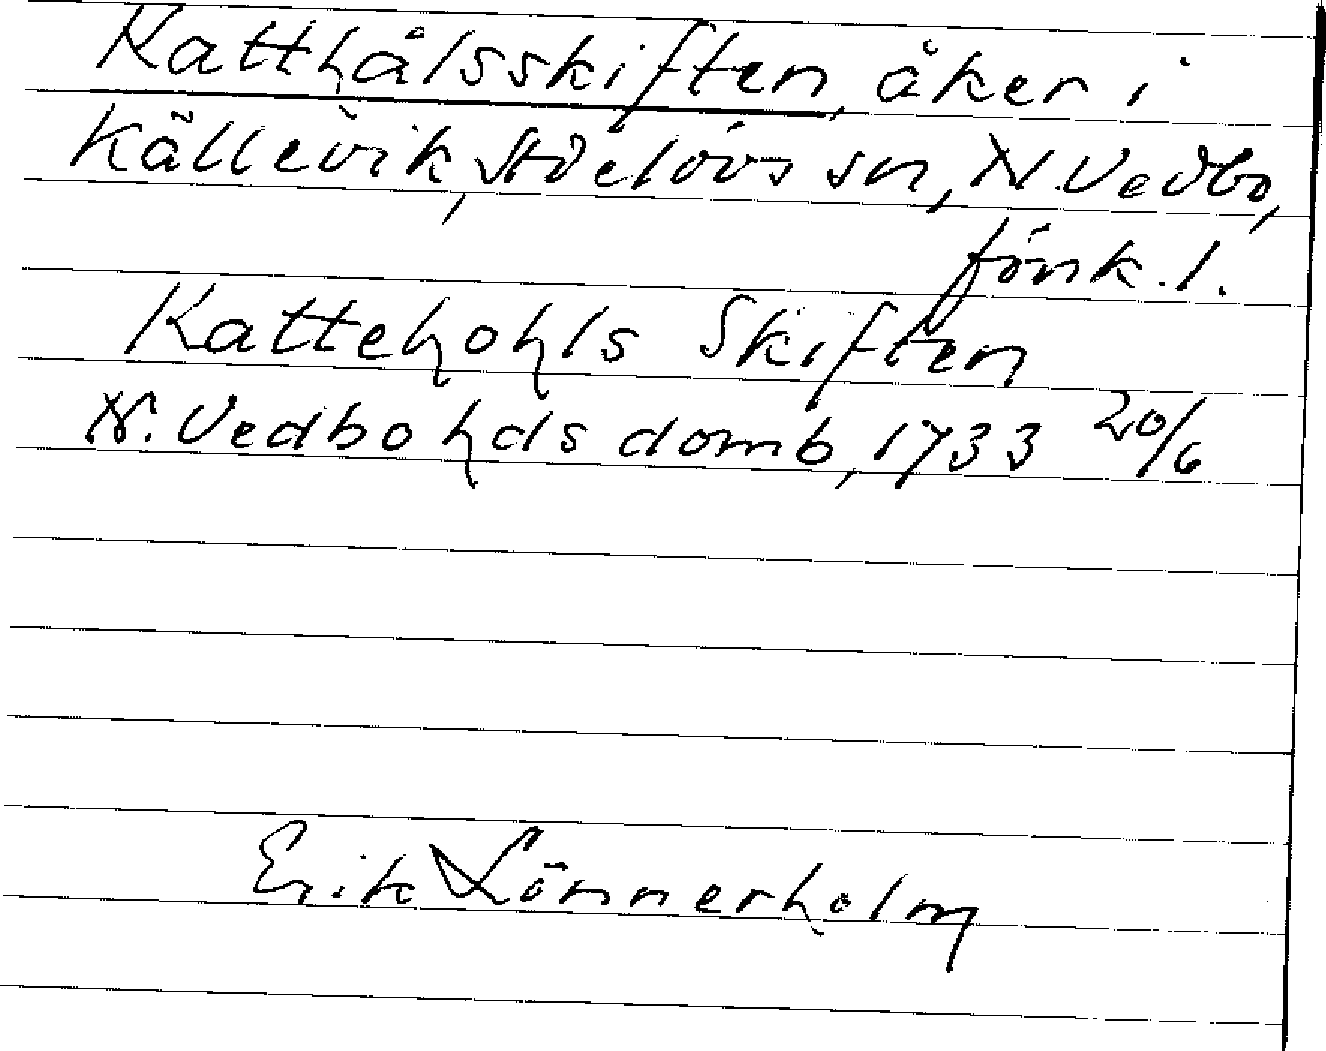 Katthålsskiften, åker i
Källevik, Ståelövs sn, N. Vedbo,
fönk. l.
Kattehohls Skiften
N. Vedbo hds domb, 1733 20/6
Erik Lönnerholm